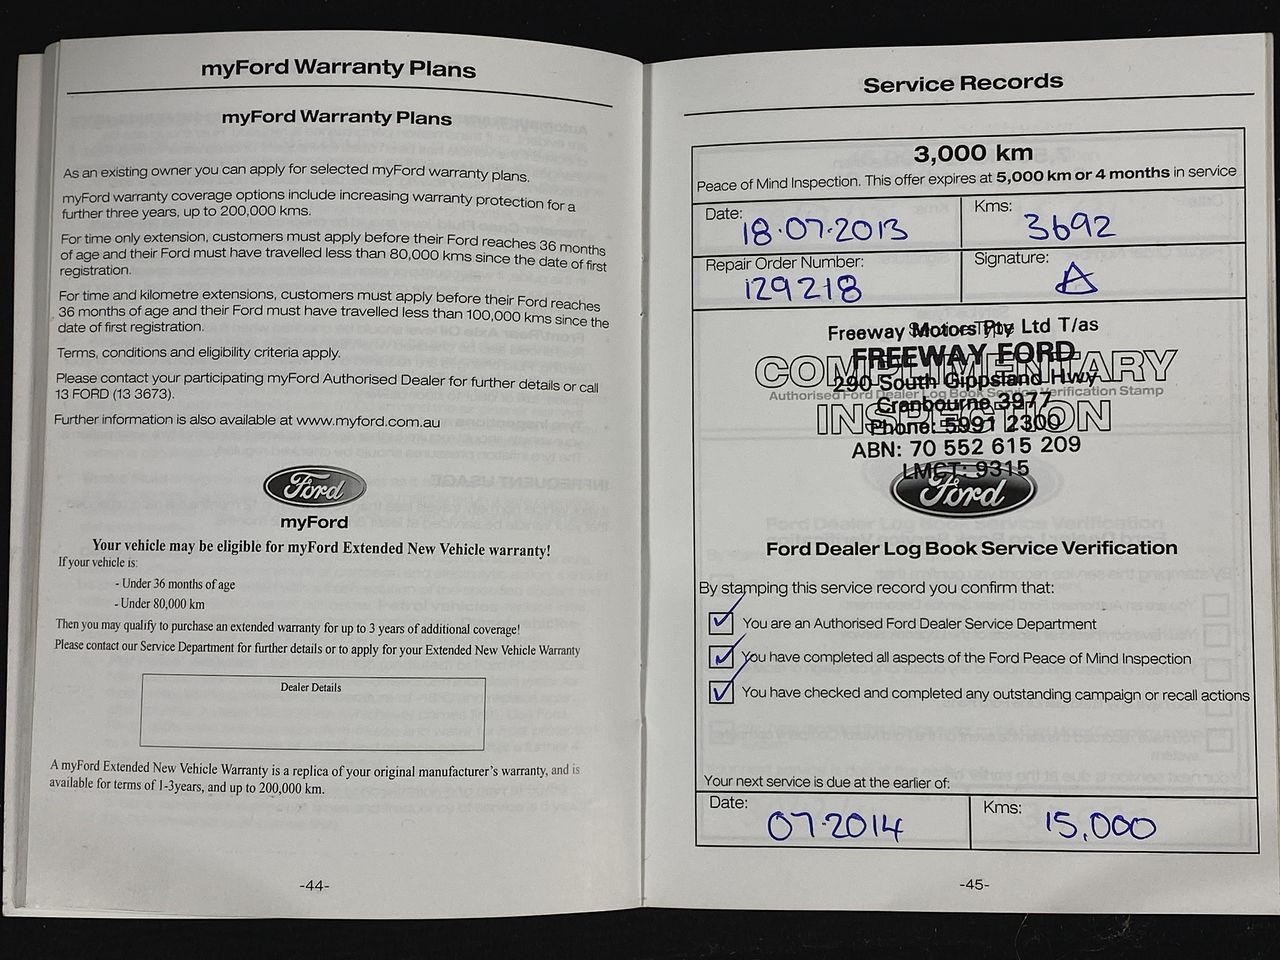 myFord Warranty Plans
myFord Warranty Plans
As an existing owner you can apply for selected myFord warranty plans.
myFord warranty coverage options include increasing warranty protection for a
further three years, up to 200,000 kms.
For time only extension, customers must apply before their Ford reaches 36 months
of age and their Ford must have travelled less than 80,000 kms since the date of first
registration.
For time and kilometre extensions, customers must apply before their Ford reaches
36 months of age and their Ford must have travelled less than 100,000 kms since the
date of first registration.
Terms, conditions and eligibility criteria apply.
Please contact your participating myFord Authorised Dealer for further details or call
13 FORD (13 3673).
Further information is also available at www.myford.com.au
Ford
myFord
Your vehicle may be eligible for myFord Extended New Vehicle warranty!
If your vehicle is:
- Under 36 months of age
- Under 80,000 km
Then you may qualify to purchase an extended warranty for up to 3 years of additional coverage!
Please contact our Service Department for further details or to apply for your Extended New Vehicle Warranty
Dealer Details
A myFord Extended New Vehicle Warranty is a replica of your original manufacturer's warranty, and is
available for terms of 1-3years, and up to 200,000 km.
-44-
Service Records
3,000 km
Peace of Mind Inspection. This offer expires at 5,000 km or 4 months in service
Date: 18.07.2013 Kms: 3692
Repair Order Number: 129218 Signature:
Service Type
Freeway Motors Pty Ltd T/as
FREEWAY FORD
COMPLIMENTARY
290 South Gippsland Hwy
Authorised Ford Dealer Log Book Service Verification Stamp
Cranbourne 3977
INSPECTION
Phone: 5991 2300
ABN: 70 552 615 209
LMCT: 9315
Ford
Ford Dealer Log Book Service Verification
By stamping this service record you confirm that:
You are an Authorised Ford Dealer Service Department
You have completed all aspects of the Ford Peace of Mind Inspection
You have checked and completed any outstanding campaign or recall actions
Your next service is due at the earlier of:
Date: 07.2014 Kms: 15,000
-45-